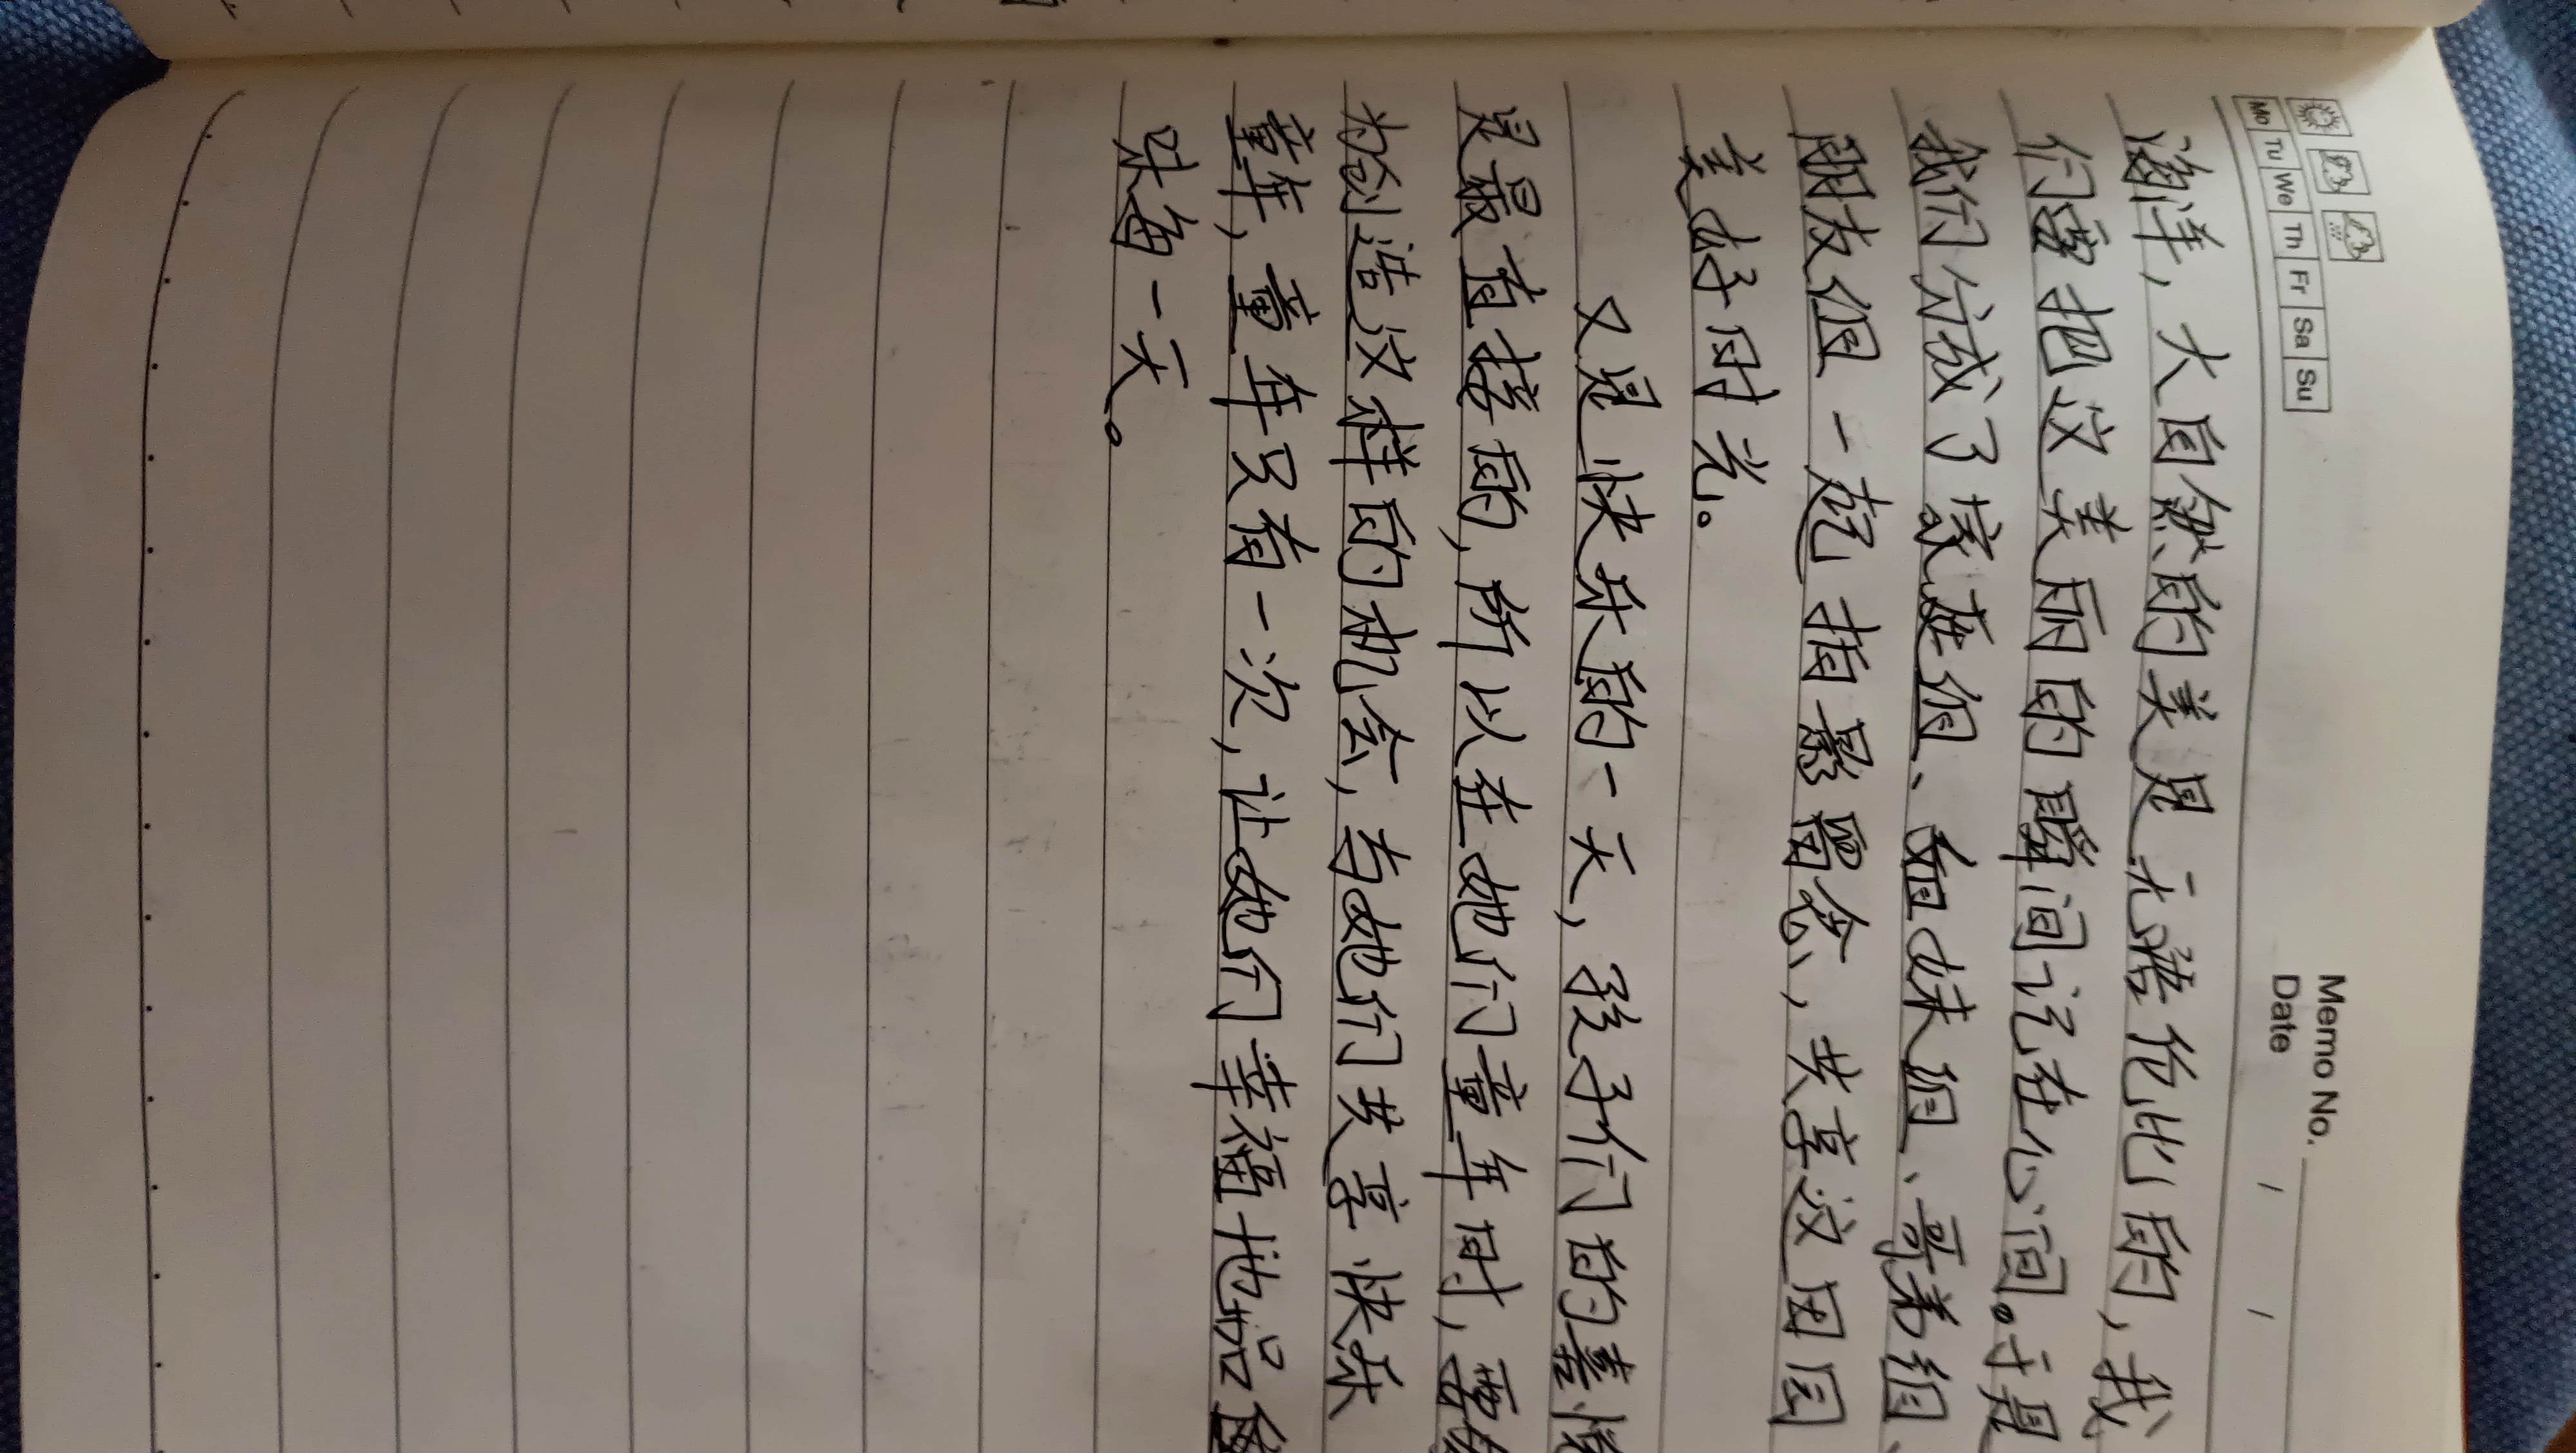 Memo No.
Mo Tu We Th Fr Sa Su
Date / /
海洋，大自然的美是无语伦比的，我
们要把这美丽的瞬间记在心间。于是
我们分成了家庭组、姐妹组、哥弟组、
朋友组一起拍影留念，共享这团团
美好时光。
又是快乐的一天，孩子们的喜悦
是最直接的，所以在她们童年时，要
为创造这样的机会，与她们共享快乐
童年，童年只有一次，让她们幸福地品
味每一天。